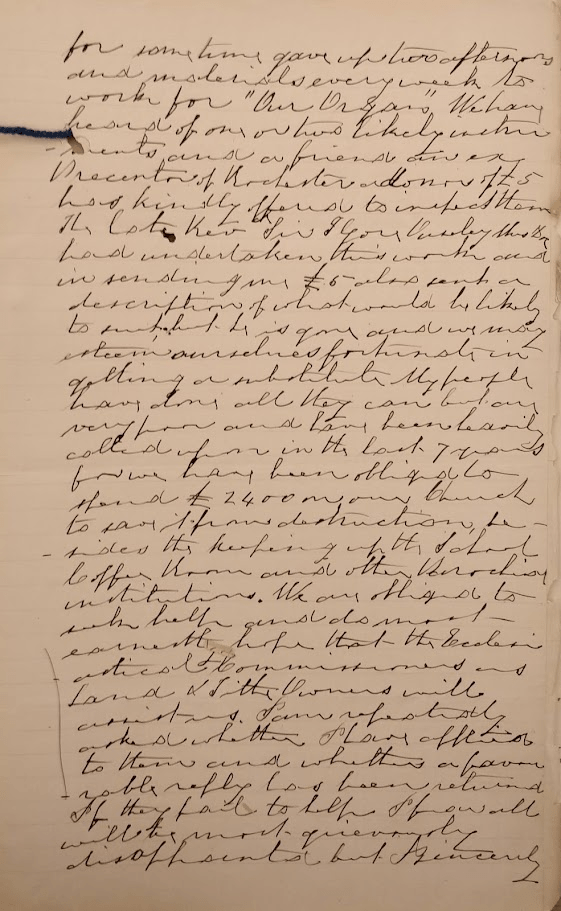 for some time gave up two afternoons
and materials every week to
work for "Our Organ". We have
heard of one or two likely instru
- ments and a friend an ex
Precentor of Rochester a donor of £5
has kindly offered to inspect them
The late Rev Sir F Gore Ouseley Mus Doc
had undertaken this work and
in sending me £5 also sent a
description of what would be likely
to suit but he is gone and we may
esteem ourselves fortunate in
getting a substitute My people
have done all they can but are
very poor and have been heavily
called upon in the last 7 years
for we have been obliged to
spend £2400 on our Church
to save it from destruction, be-
- sides the keeping up the School
Coffee Room and other Parochial
institutions. We are obliged to
seek help and do most
earnestly hope that the Ecclesi
astical Commissioners as
Land & Tithe Owners will
assist us. I am repeatedly
asked whether I have applied
to them and whether a favou
rable reply has been returned
If they fail to help I fear all
will be most grievously
disappointed but I sincerely